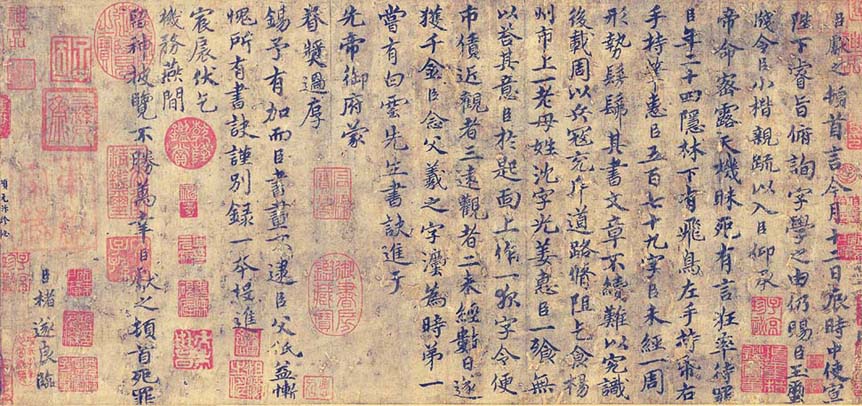 臣獻之頓首言今月十二日辰時中使宣
陛下睿旨俯詢字學之由仍賜臣玉璽
牋令臣小楷親疏以入臣仰承
帝命密露天機昧死有言狂率待罪
臣年二十四隱林下有飛鳥左手持帋右
手持筆惠臣五百七十九字臣未經一周
形勢髣髴其書文章不續難以究識
後載周以兵寇充斥道路脩阻乞食楊
州市上一老母姓沈字光姜惠臣一飱無
以荅其意臣於匙面上作一夜字令便
市債近觀者三遠觀者二未經數日遂
獲千金臣念父羲之字灋為時第一
嘗有白雲先生書訣進于
先帝御府蒙
眷獎過厚
錫予有加而臣書畫不逮臣父祇益慚
愧所有書訣謹別録一本投進
宸扆伏乞
機務燕閒
留神披覽不勝萬幸臣獻之頓首死罪
臣褚遂良臨